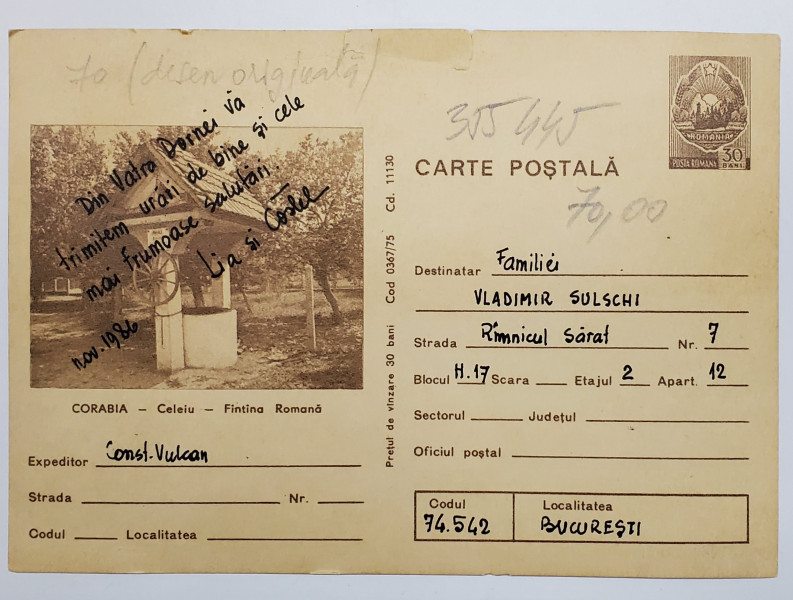 70 (desen originală)
Din Vatra Dornei vă
trimitem urări de bine și cele
mai frumoase salutări.
Lia și Costel
nov. 1986
CORABIA – Celeiu – Fîntîna Romană
Expeditor Const. Vulcan
Strada Nr.
Codul Localitatea
Prețul de vînzare 30 bani Cod 0367/75 Cd. 11130
355445
ROMANIA
POSTA ROMANA 30 BANI
CARTE POȘTALĂ
70,00
Destinatar Familiei
VLADIMIR SULSCHI
Strada Rîmnicul Sărat Nr. 7
Blocul H.17 Scara Etajul 2 Apart. 12
Sectorul Județul
Oficiul poștal
Codul Localitatea
74.542 BUCUREȘTI